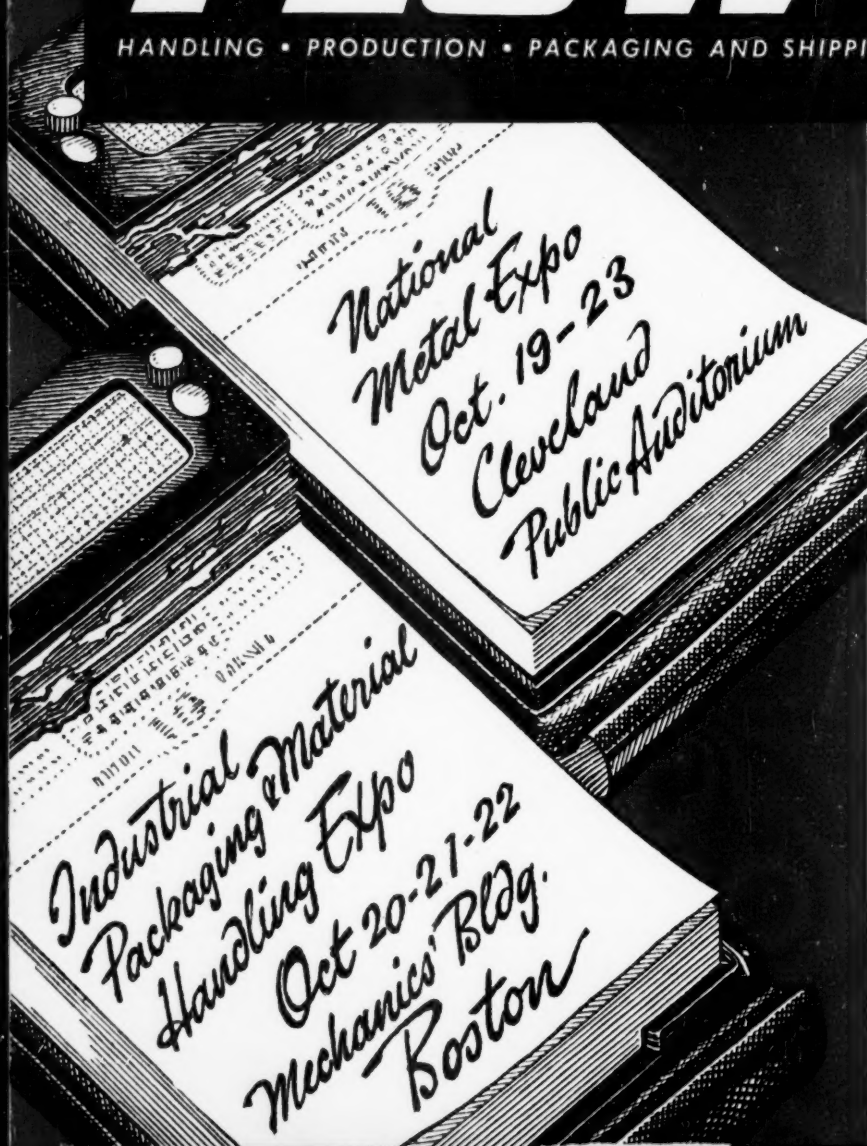 HANDLING • PRODUCTION • PACKAGING AND SHIPPI
National
Metal Expo
Oct. 19-23
Cleveland
Public Auditorium
Industrial
Packaging & Material
Handling Expo
Oct 20-21-22
Mechanics' Bldg.
Boston